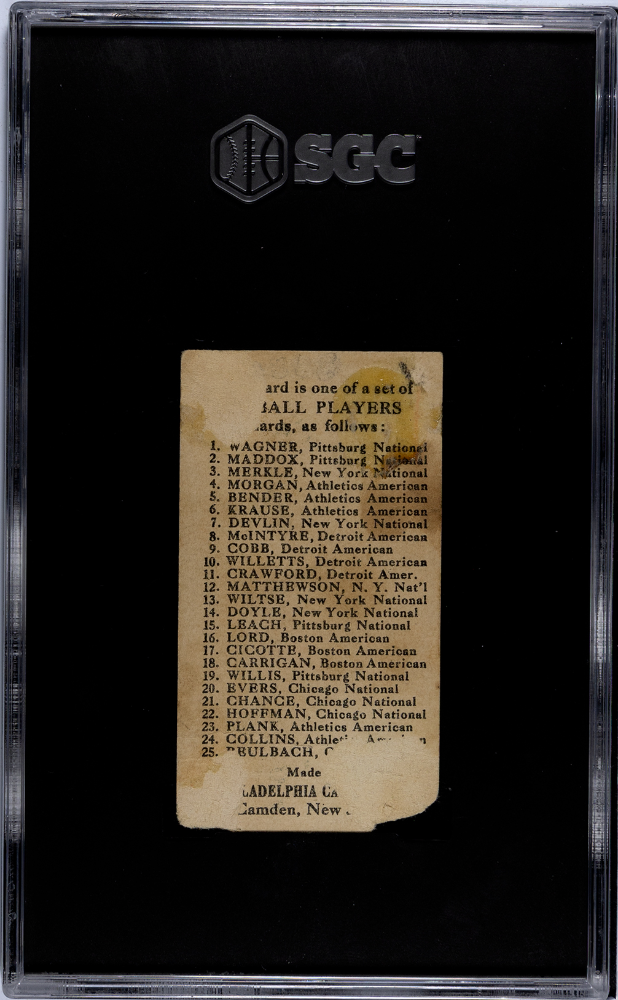 SGC
ard is one of a set of
BALL PLAYERS
ards, as follows:
1. WAGNER, Pittsburg National
2. MADDOX, Pittsburg National
3. MERKLE, New York National
4. MORGAN, Athletics American
5. BENDER, Athletics American
6. KRAUSE, Athletics American
7. DEVLIN, New York National
8. McINTYRE, Detroit American
9. COBB, Detroit American
10. WILLETTS, Detroit American
11. CRAWFORD, Detroit Amer.
12. MATTHEWSON, N. Y. Nat'l
13. WILTSE, New York National
14. DOYLE, New York National
15. LEACH, Pittsburg National
16. LORD, Boston American
17. CICOTTE, Boston American
18. CARRIGAN, Boston American
19. WILLIS, Pittsburg National
20. EVERS, Chicago National
21. CHANCE, Chicago National
22. HOFFMAN, Chicago National
23. PLANK, Athletics American
24. COLLINS, Athleti
25. REULBACH, C
Made
LADELPHIA CA
Camden, New